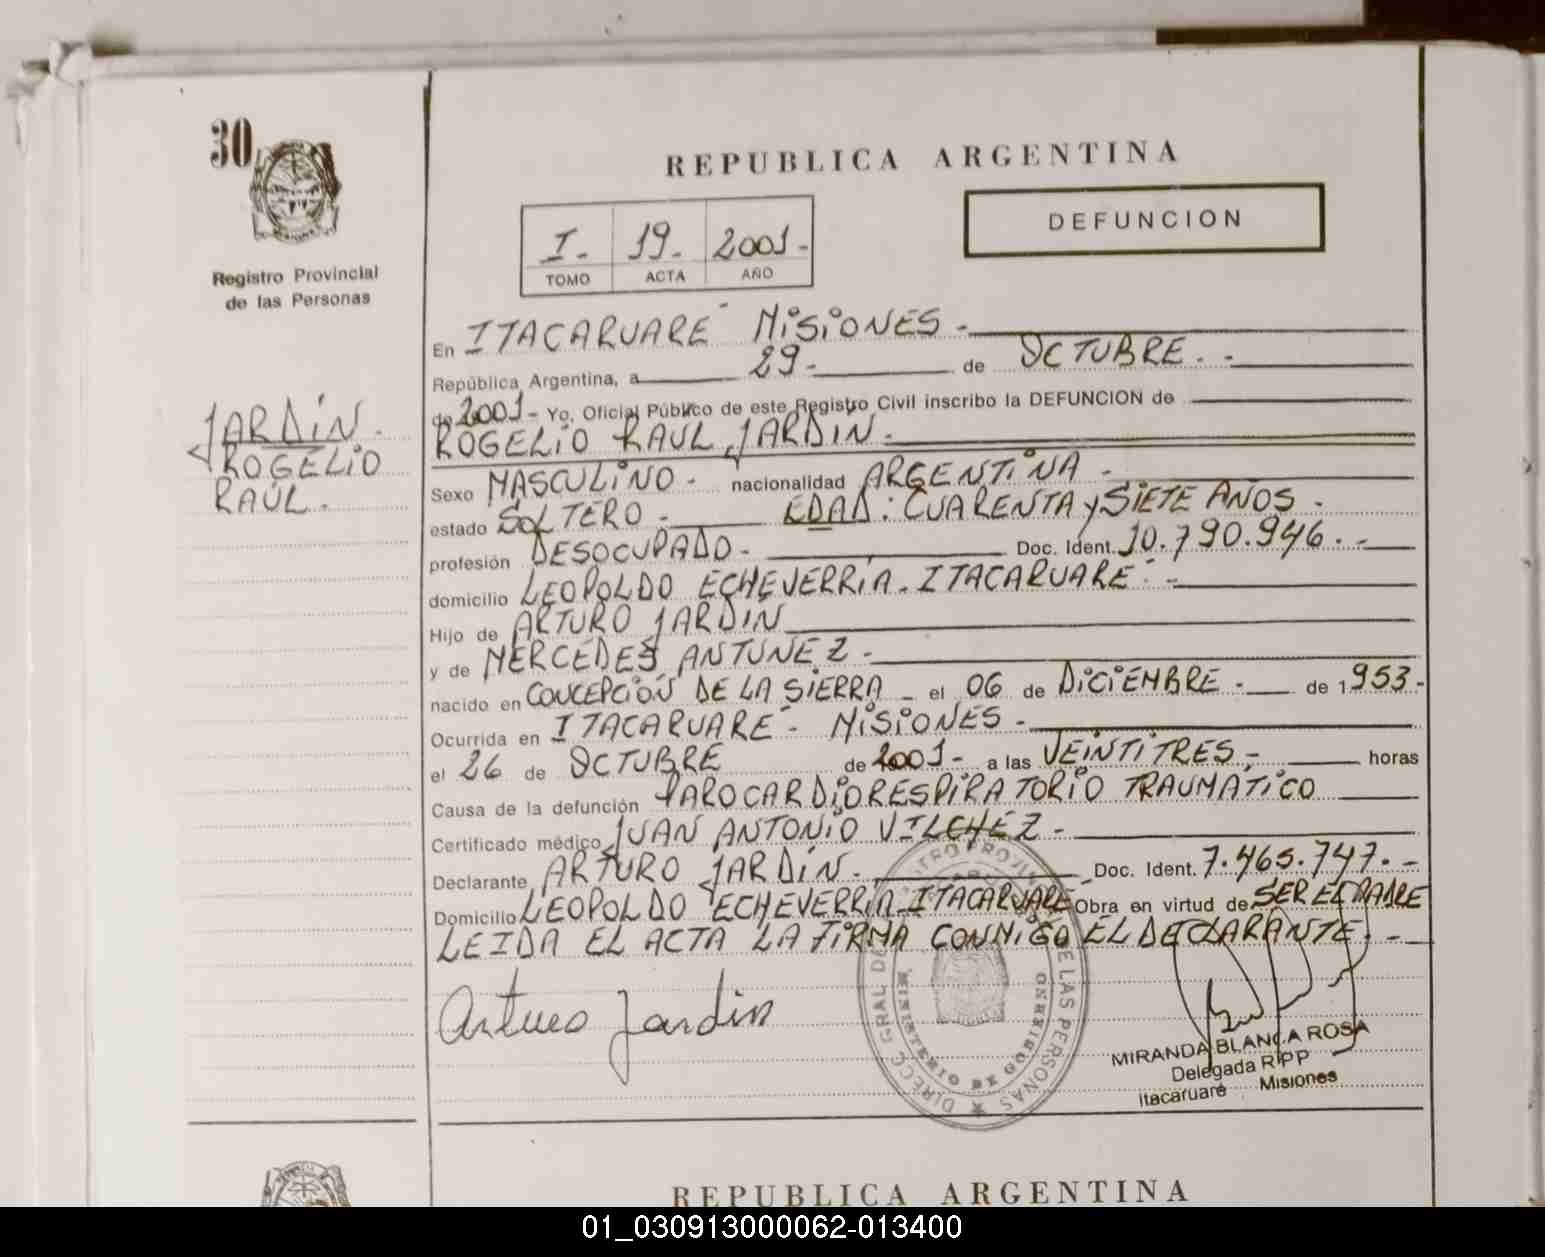 30
Registro Provincial
de las Personas
JARDÍN.
ROGELIO
RAÚL.
REPUBLICA ARGENTINA
I- 19- 2001-
TOMO ACTA AÑO
DEFUNCION
En ITACARUARÉ MISIONES-
República Argentina, a 29- de OCTUBRE.-
de 2001- Yo, Oficial Público de este Registro Civil inscribo la DEFUNCION de
ROGELIO RAÚL JARDÍN.
Sexo MASCULINO- nacionalidad ARGENTINA-
estado SOLTERO- EDAD: CUARENTA y SIETE AÑOS-
profesión DESOCUPADO- Doc. Ident. 10.790.946.-
domicilio LEOPOLDO ECHEVERRÍA. ITACARUARÉ-
Hijo de ARTURO JARDÍN
y de MERCEDES ANTUNEZ-
nacido en CONCEPCIÓN DE LA SIERRA- el 06 de DICIEMBRE- de 1953-
Ocurrida en ITACARUARÉ- MISIONES-
el 26 de OCTUBRE de 2001- a las VEINTITRES,- horas
Causa de la defunción PAROCARDIORESPIRATORIO TRAUMATICO
Certificado médico JUAN ANTONIO VILCHEZ-
Declarante ARTURO JARDÍN. Doc. Ident. 7.465.747.-
Domicilio LEOPOLDO ECHEVERRÍA-ITACARUARÉ Obra en virtud de SER EL PADRE
LEIDA EL ACTA LA FIRMA CONMIGO EL DECLARANTE.-
Arturo Jardin
DIRECC. GRAL DE REGISTRO PROVINCIAL DE LAS PERSONAS
MINISTERIO DE GOBIERNO
MIRANDA BLANCA ROSA
Delegada RPP
Itacaruaré Misiones
REPUBLICA ARGENTINA
01_030913000062-013400